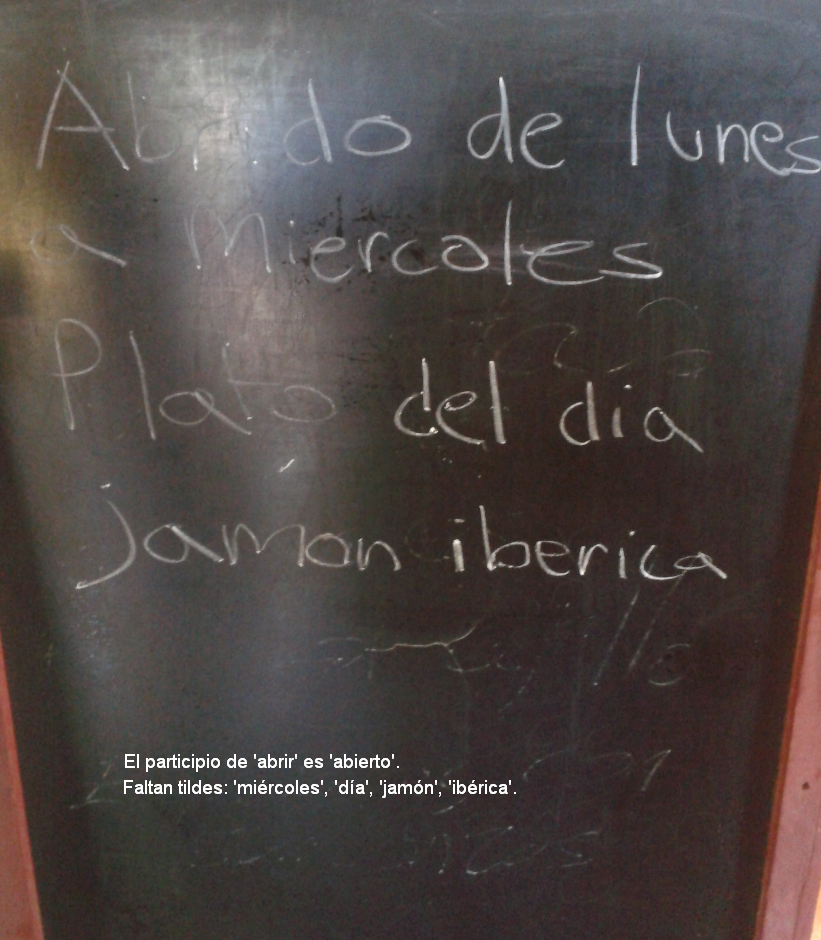 Abrido de lunes
a miercoles
Plato del dia
jamon iberica
El participio de 'abrir' es 'abierto'.
Faltan tildes: 'miércoles', 'día', 'jamón', 'ibérica'.